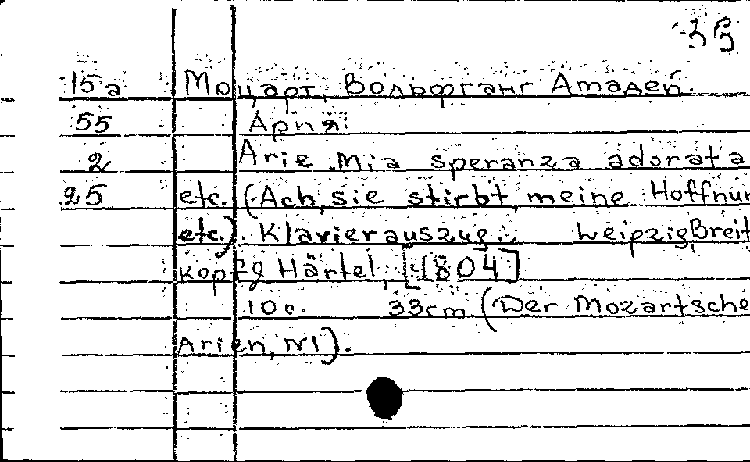 35
15а Моцарт, Вольфганг Амадей.
55 Ария.
2 Arie Mia speranza adorata
25 etc. (Ach, sie stirbt, meine Hoffnun
etc.). Klavierauszug. Leipzig, Breit
kopf g Härtel, [1804]
10 с. 33 cm (Der Mozartsche
Arien, N1).